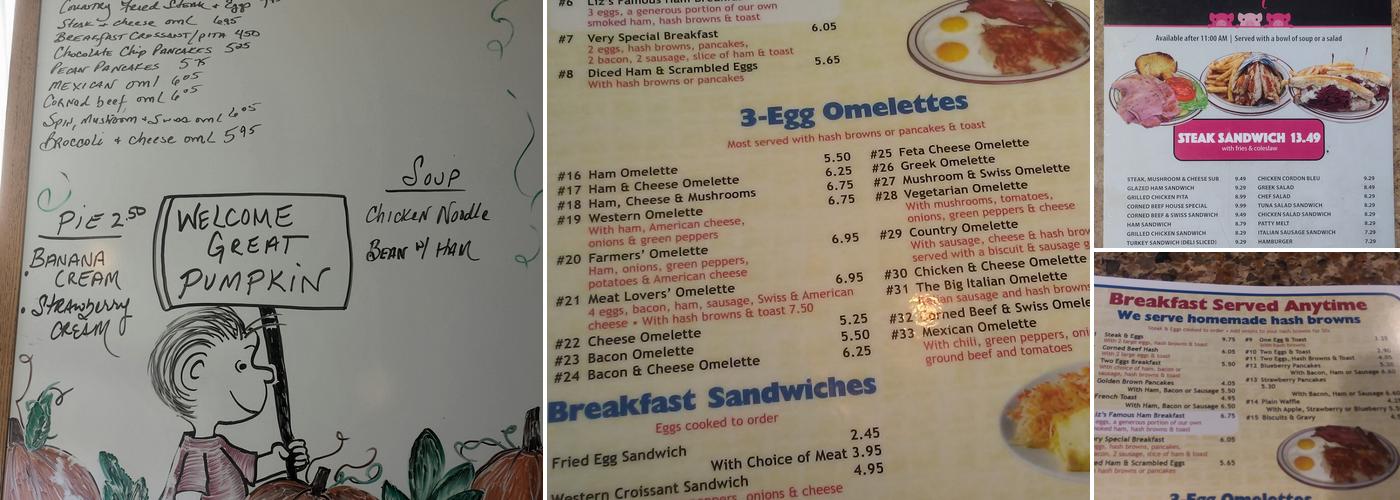 Country Fried Steak + Eggs
Steak + cheese oml 695
Breakfast Crossant/pita 450
Chocolate Chip Pancakes 525
Pecan Pancakes 575
Mexican oml 605
Corned beef oml 605
Spin, Mushroom + Swiss oml 605
Broccoli + cheese oml 595
Pie 2.50
Banana
Cream
Strawberry
Cream
Welcome
Great
Pumpkin
Soup
Chicken Noodle
Bean w/ Ham
#6 Liz's Famous Ham Breakfast
3 eggs, a generous portion of our own
smoked ham, hash browns & toast
#7 Very Special Breakfast 6.05
2 eggs, hash browns, pancakes,
2 bacon, 2 sausage, slice of ham & toast
#8 Diced Ham & Scrambled Eggs 5.65
With hash browns or pancakes
3-Egg Omelettes
Most served with hash browns or pancakes & toast
#16 Ham Omelette 5.50
#17 Ham & Cheese Omelette 6.25
#18 Ham, Cheese & Mushrooms 6.75
#19 Western Omelette 6.75
With ham, American cheese,
onions & green peppers
#20 Farmers' Omelette 6.95
Ham, onions, green peppers,
potatoes & American cheese
#21 Meat Lovers' Omelette 6.95
4 eggs, bacon, ham, sausage, Swiss & American
cheese • With hash browns & toast 7.50
#22 Cheese Omelette 5.25
#23 Bacon Omelette 5.50
#24 Bacon & Cheese Omelette 6.25
#25 Feta Cheese Omelette
#26 Greek Omelette
#27 Mushroom & Swiss Omelette
#28 Vegetarian Omelette
With mushrooms, tomatoes,
onions, green peppers & cheese
#29 Country Omelette
With sausage, cheese & hash brow
served with a biscuit & sausage g
#30 Chicken & Cheese Omelette
#31 The Big Italian Omelette
Italian sausage and hash browns
#32 Corned Beef & Swiss Omele
#33 Mexican Omelette
With chili, green peppers, oni
ground beef and tomatoes
Breakfast Sandwiches
Eggs cooked to order
Fried Egg Sandwich 2.45
With Choice of Meat 3.95
Western Croissant Sandwich 4.95
onions & cheese
Available after 11:00 AM | Served with a bowl of soup or a salad
STEAK SANDWICH 13.49
with fries & coleslaw
STEAK, MUSHROOM & CHEESE SUB 9.49
GLAZED HAM SANDWICH 9.29
GRILLED CHICKEN PITA 8.99
CORNED BEEF HOUSE SPECIAL 9.99
CORNED BEEF & SWISS SANDWICH 9.49
HAM SANDWICH 8.29
GRILLED CHICKEN SANDWICH 8.29
TURKEY SANDWICH (DELI SLICED) 9.29
CHICKEN CORDON BLEU 9.29
GREEK SALAD 8.49
CHEF SALAD 8.29
TUNA SALAD SANDWICH 8.29
CHICKEN SALAD SANDWICH 8.29
PATTY MELT 8.29
ITALIAN SAUSAGE SANDWICH 7.29
HAMBURGER 7.29
Breakfast Served Anytime
We serve homemade hash browns
Steak & Eggs cooked to order • Add onions to your hash browns for 50¢
Steak & Eggs 9.75
With 2 large eggs, hash browns & toast
Corned Beef Hash 6.05
With 2 large eggs & toast
Two Eggs Breakfast 5.90
With choice of ham, bacon or
sausage, hash browns & toast
Golden Brown Pancakes 4.05
With Ham, Bacon or Sausage 6.50
French Toast 4.95
With Ham, Bacon or Sausage 6.50
Liz's Famous Ham Breakfast 6.75
eggs, a generous portion of our own
smoked ham, hash browns & toast
ery Special Breakfast 6.05
eggs, hash browns, pancakes,
bacon, 2 sausage, slice of ham & toast
ed Ham & Scrambled Eggs 5.65
h hash browns or pancakes
#9 One Egg & Toast
With hash browns
#10 Two Eggs & Toast
#11 Two Eggs, Hash Browns & Toast
#12 Blueberry Pancakes
With Bacon, Ham or Sausage
#13 Strawberry Pancakes
5.30
With Bacon, Ham or Sausage
#14 Plain Waffle
With Apple, Strawberry or Blueberry
#15 Biscuits & Gravy
3-Egg Omelettes